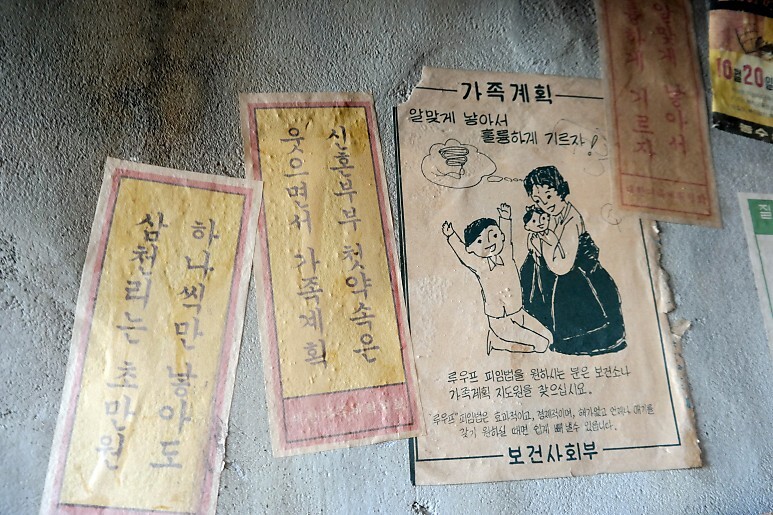 하나씩만 낳아도
삼천리는 초만원
신혼부부 첫약속은
웃으면서 가족계획
가족계획
알맞게 낳아서
훌륭하게 기르자!
루우프 피임법을 원하시는 분은 보건소나
가족계획 지도원을 찾으십시요.
"루우프"피임법은 효과적이고, 경제적이며, 해가없고 언제나 애기를
갖기 원하실 때면 쉽게 빼낼수 있읍니다.
보건사회부
알맞게 낳아서
훌륭하게 기르자
10월20일